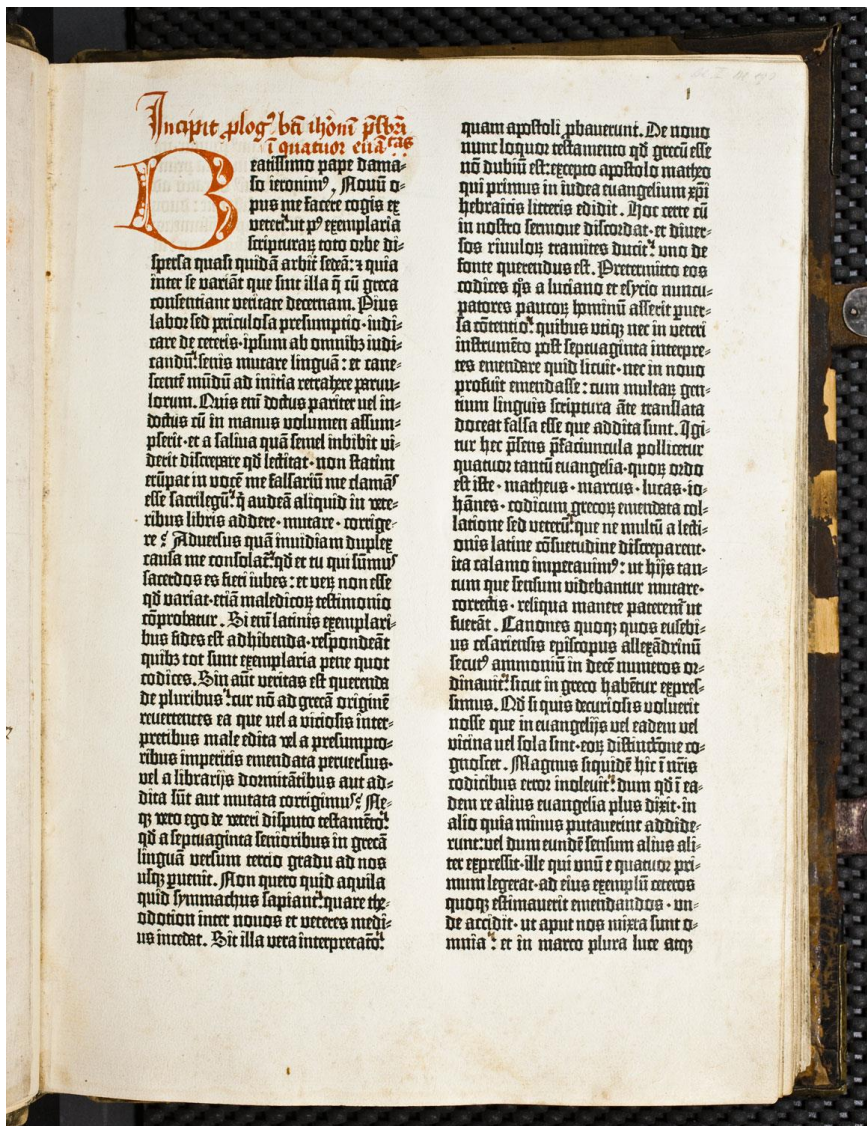 Incipit plogꝰ bt̄i ih̓onī p̄sbr̄i
ī quatuor euāᵍᵃˢ
Beatissimo pape dama⸗
so ieronimꝰ, Nouū o⸗
pus me facere cogis ex
veteri: ut pꝰ exemplaria
scripturaꝝ toto orbe di⸗
spersa quasi quidā arbiť sedeā: ⁊ quia
inter se variāt que sint illa q̄ cū greca
consentiant veritate decernam. Pius
labor sed periculosa presumptio · iudi⸗
care de ceteris · ipsum ab omnibꝫ iudi⸗
candū: senis mutare linguā : et cane⸗
scentē mūdū ad initia retrahere paruu⸗
lorum. Quis eni doctus pariter uel in⸗
doctus cū in manus volumen assum⸗
pserit · et a saliua quā semel inbibit vi⸗
derit discrepare qd̄ lectitat · non statim
erūpat in vocē me falsariū me clamāˢ
esse sacrilegū: q̄ audeā aliquid in vete⸗
ribus libris addere · mutare · corrige⸗
re ? Aduersus quā inuidiam duplex
causa me consolať: qd̄ et tu qui sūmuˢ
sacerdos es fieri iubes : et veꝝ non esse
qd̄ variat · etiā maledicoꝝ testimonio
cōprobatur . Si eni latinis exemplari⸗
bus fides est adhibenda · respondeāt
quibꝫ tot sunt exemplaria pene quot
codices. Sin aūt veritas est querenda
de pluribus : cur nō ad grecā originē
reuertentes ea que uel a viciosis inter⸗
pretibus male edita vel a presumpto⸗
ribus imperitis emendata peruersius ·
vel a librarijs dormitātibus aut ad⸗
dita sūt aut mutata corrigimuˢ? Ne⸗
qꝫ vero ego de veteri disputo testamēto:
qd̄ a septuaginta senioribus in grecā
linguā versum tercio gradu ad nos
usqꝫ puenit. Non quero quid aquila
quid symmachus sapiant: quare the⸗
odotion inter nouos et veteres medi⸗
us incedat. Sit illa vera interpretatō:
quam apostoli pbauerunt. De nouo
nunc loquor testamento qd̄ grecū esse
nō dubiū est: excepto apostolo matheo
qui primus in iudea euangelium xp̄i
hebraicis litteris edidit . Hoc certe cū
in nostro sermone discordat · et diuer⸗
sos riuuloꝝ tramites ducit: vno de
fonte querendus est. Pretermitto eos
codices q̊s a luciano et esycio nuncu⸗
patores paucoꝝ hominū asserit puer⸗
sa cōtentio: quibus vtiqꝫ nec in veteri
instrumēto post septuaginta interpre⸗
tes emendare quid licuit · nec in nouo
profuit emendasse : cum multaꝝ gen⸗
tium linguis scriptura āte translata
doceat falsa esse que addita sunt. Igi⸗
tur hec p̄sens p̄faciuncula pollicetur
quatuor tantū euangelia · quoꝝ ordo
est iste · matheus · marcus · lucas · io⸗
hānes · codicum grecoꝝ emendata col⸗
latione sed veterū: que ne multū a lecti⸗
onis latine cōsuetudine discreparent ·
ita calamo imperauimꝰ : ut hijs tan⸗
tum que sensum videbantur mutare ·
correctis · reliqua manere pateremť ut
fuerāt . Canones quoqꝫ quos eusebi⸗
us cesariensis episcopus allexādrinū
secutꝰ ammoniū in decē numeros or⸗
dinauit: sicut in greco habētur expres⸗
simus. Qd̄ si quis de curiosis voluerit
nosse que in euangelijs vel eadem vel
vicina uel sola sint · eoꝝ distinctōne co⸗
gnoscet . Magnus siquidē hic ī nr̄is
codicibus error inoleuit: dum qd̄ ī ea⸗
dem re alius euangelia plus dixit · in
alio quia minus putauerint addide⸗
runt: vel dum eundē sensum alius ali⸗
ter expressit · ille qui vnū e quatuor pri⸗
mum legerat · ad eius exemplū ceteros
quoqꝫ estimauerit emendandos · vn⸗
de accidit · ut aput nos mixta sunt o⸗
mnia : et in marco plura luce atqꝫ